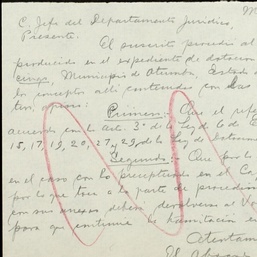 M
C. Jefe del Departamento Jurídico,
Presente.
El suscrito procedió al
producido en el expediente de dotación
Municipio de Otumba, Estado d
los conceptos allí contenidos con las
Primero: - Que el refe
acuerdo con los Arts. 3° de la Ley de 6 E
15, 17, 19, 20, 27 y 29, de la Ley de Dotacion
Segundo: - Que por lo
en el caso con lo preceptuado en el Ca
por lo que toca a la parte de procedim
con sus anexos deben devolverse al Vo
para que continúe la tramitación en
Atentam
El Abogado